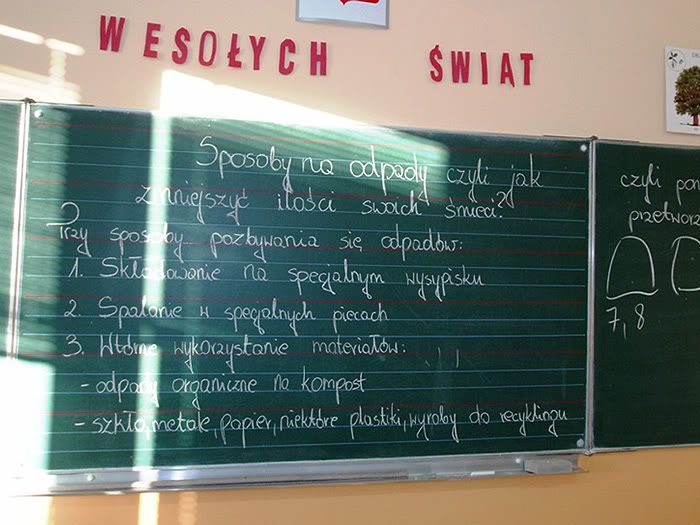 WESOŁYCH ŚWIAT
Sposoby na odpady czyli jak
zmniejszyć ilości swoich śmieci?
Przy sposoby pozbywania się odpadów:
1. Składowanie na specjalnym wysypisku
2. Spalanie w specjalnych piecach
3. Wtórne wykorzystanie materiałów:
- odpady organiczne na kompost
- szkło, metale, papier, niektóre plastiki, wyroby do recyklingu
czyli
przetworz
7, 8